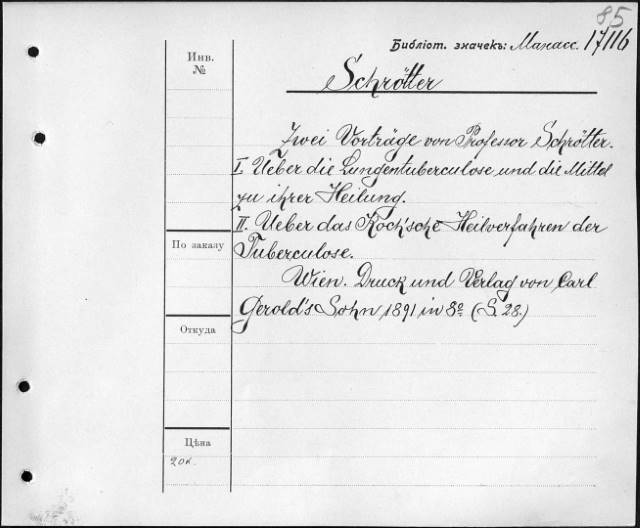 85
Библіот. значекъ: Манасс. 17/116
Инв.
№
Schrötter
Zwei Vorträge von Professor Schrötter.
I. Ueber die Lungentuberculose und die Mittel
zu ihrer Heilung.
II. Ueber das Koch'sche Heilverfahren der
Tuberculose.
Wien. Druck und Verlag von Carl
Gerold's Sohn 1891 in 8º (S. 28.)
По заказу
Откуда
Цѣна
20 к.